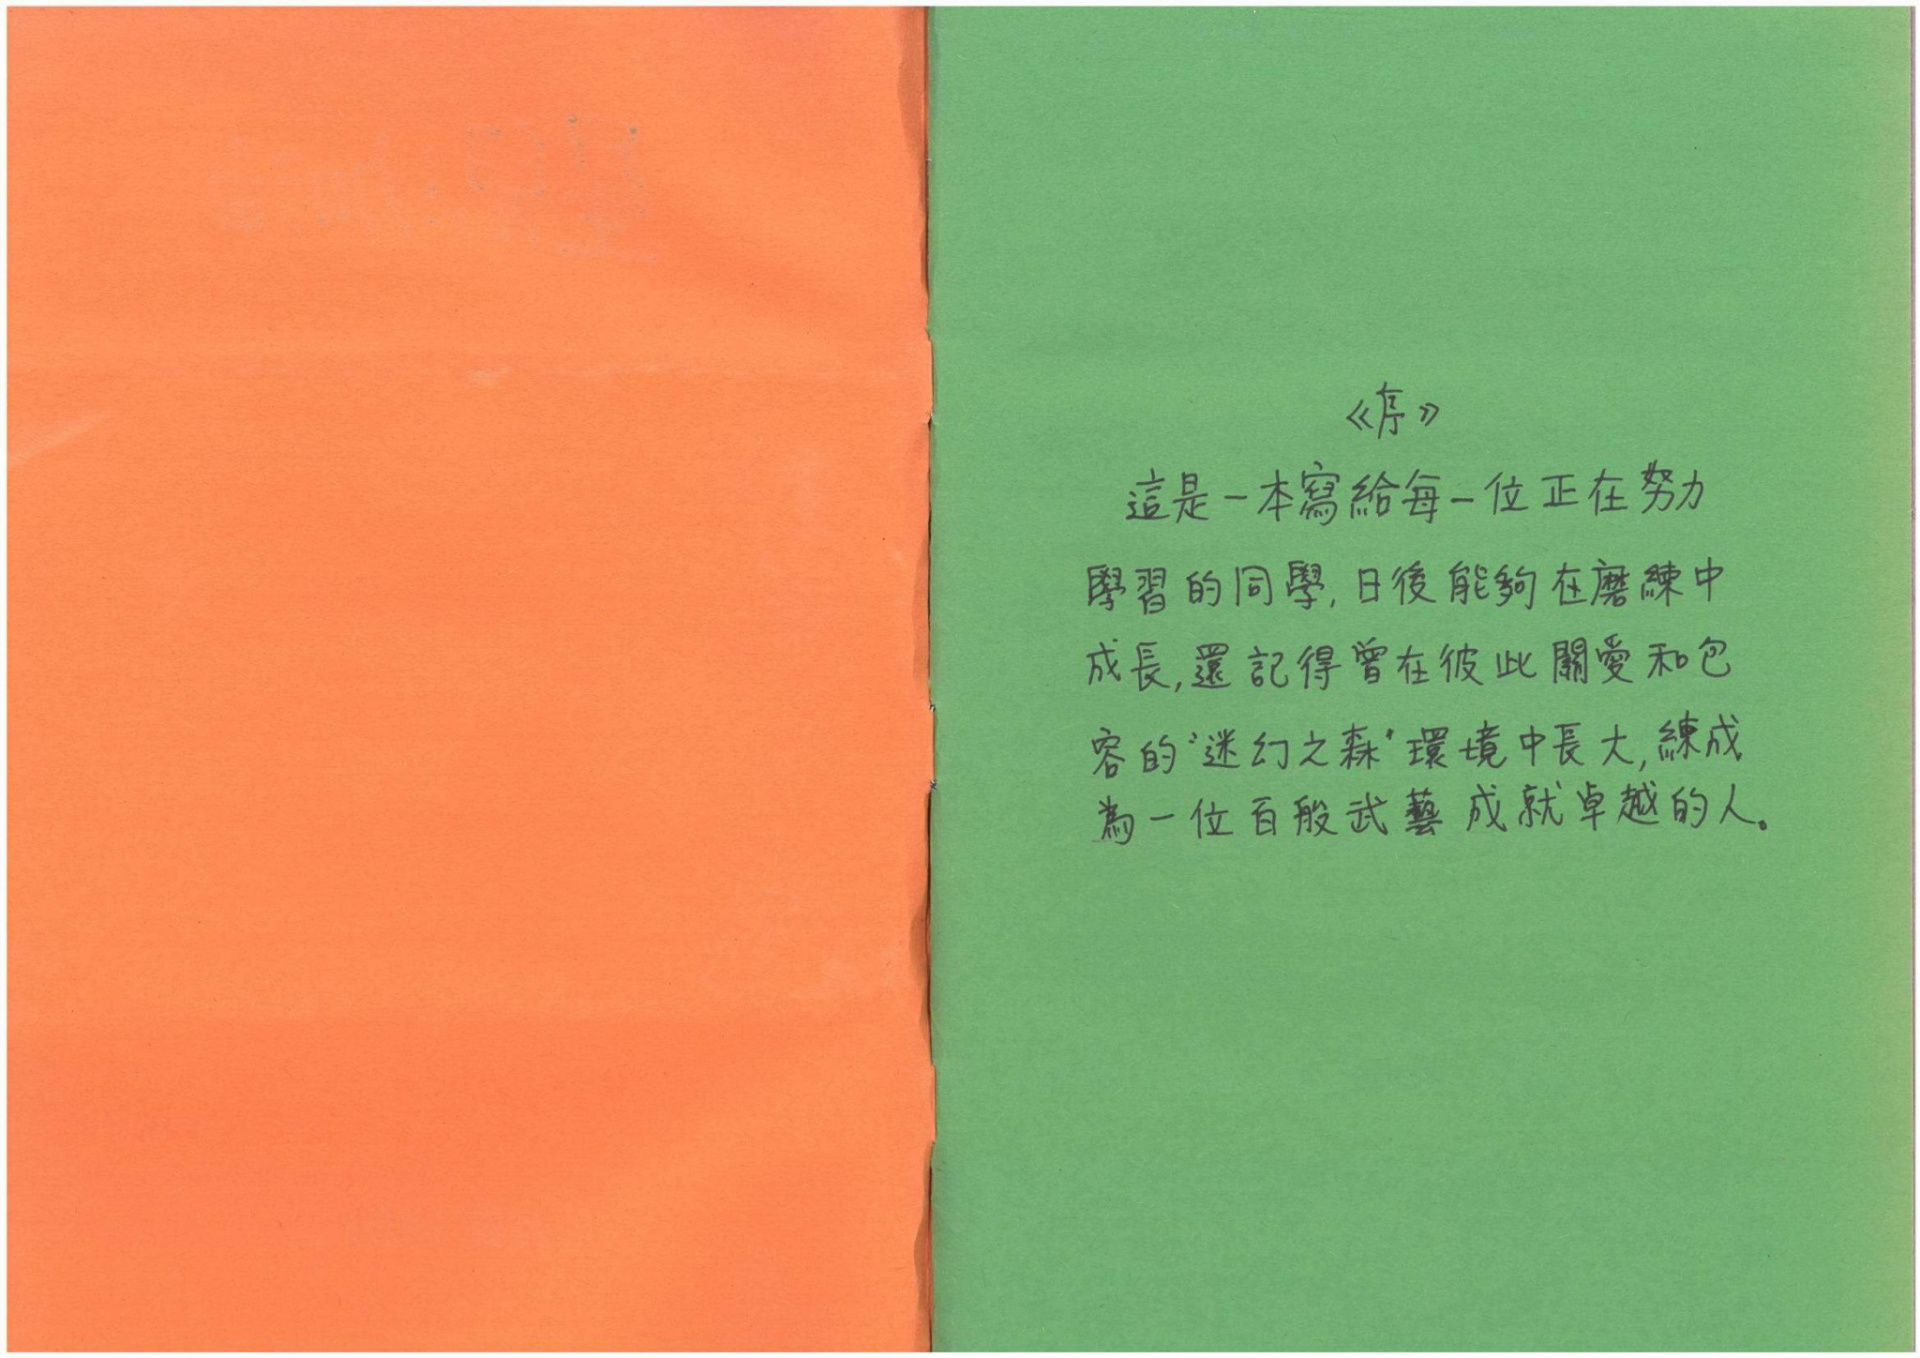 《序》
這是一本寫給每一位正在努力
學習的同學,日後能夠在磨練中
成長,還記得曾在彼此關愛和包
容的“迷幻之森”環境中長大,練成
為一位百般武藝成就卓越的人。